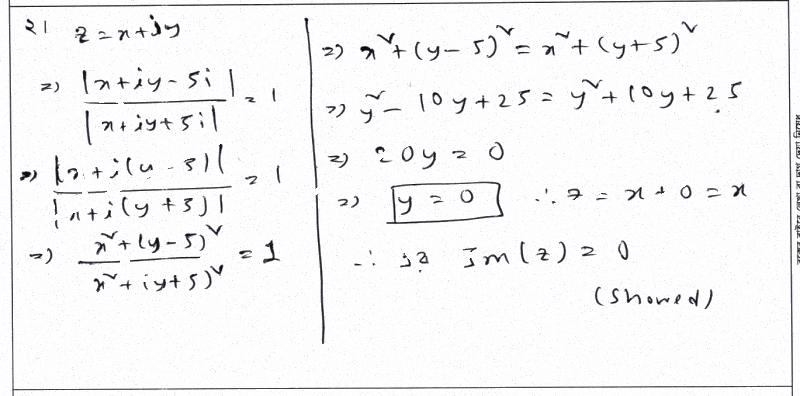 ২। z = x + iy
=> |x + iy - 5i| / |x + iy + 5i| = 1
=> |x + i(y - 5)| / |x + i(y + 5)| = 1
=> x² + (y - 5)² / x² + (y + 5)² = 1
=> x² + (y - 5)² = x² + (y + 5)²
=> y² - 10y + 25 = y² + 10y + 25
=> 20y = 0
=> y = 0 ∴ z = x + 0 = x
∴ Im(z) = 0
(Showed)